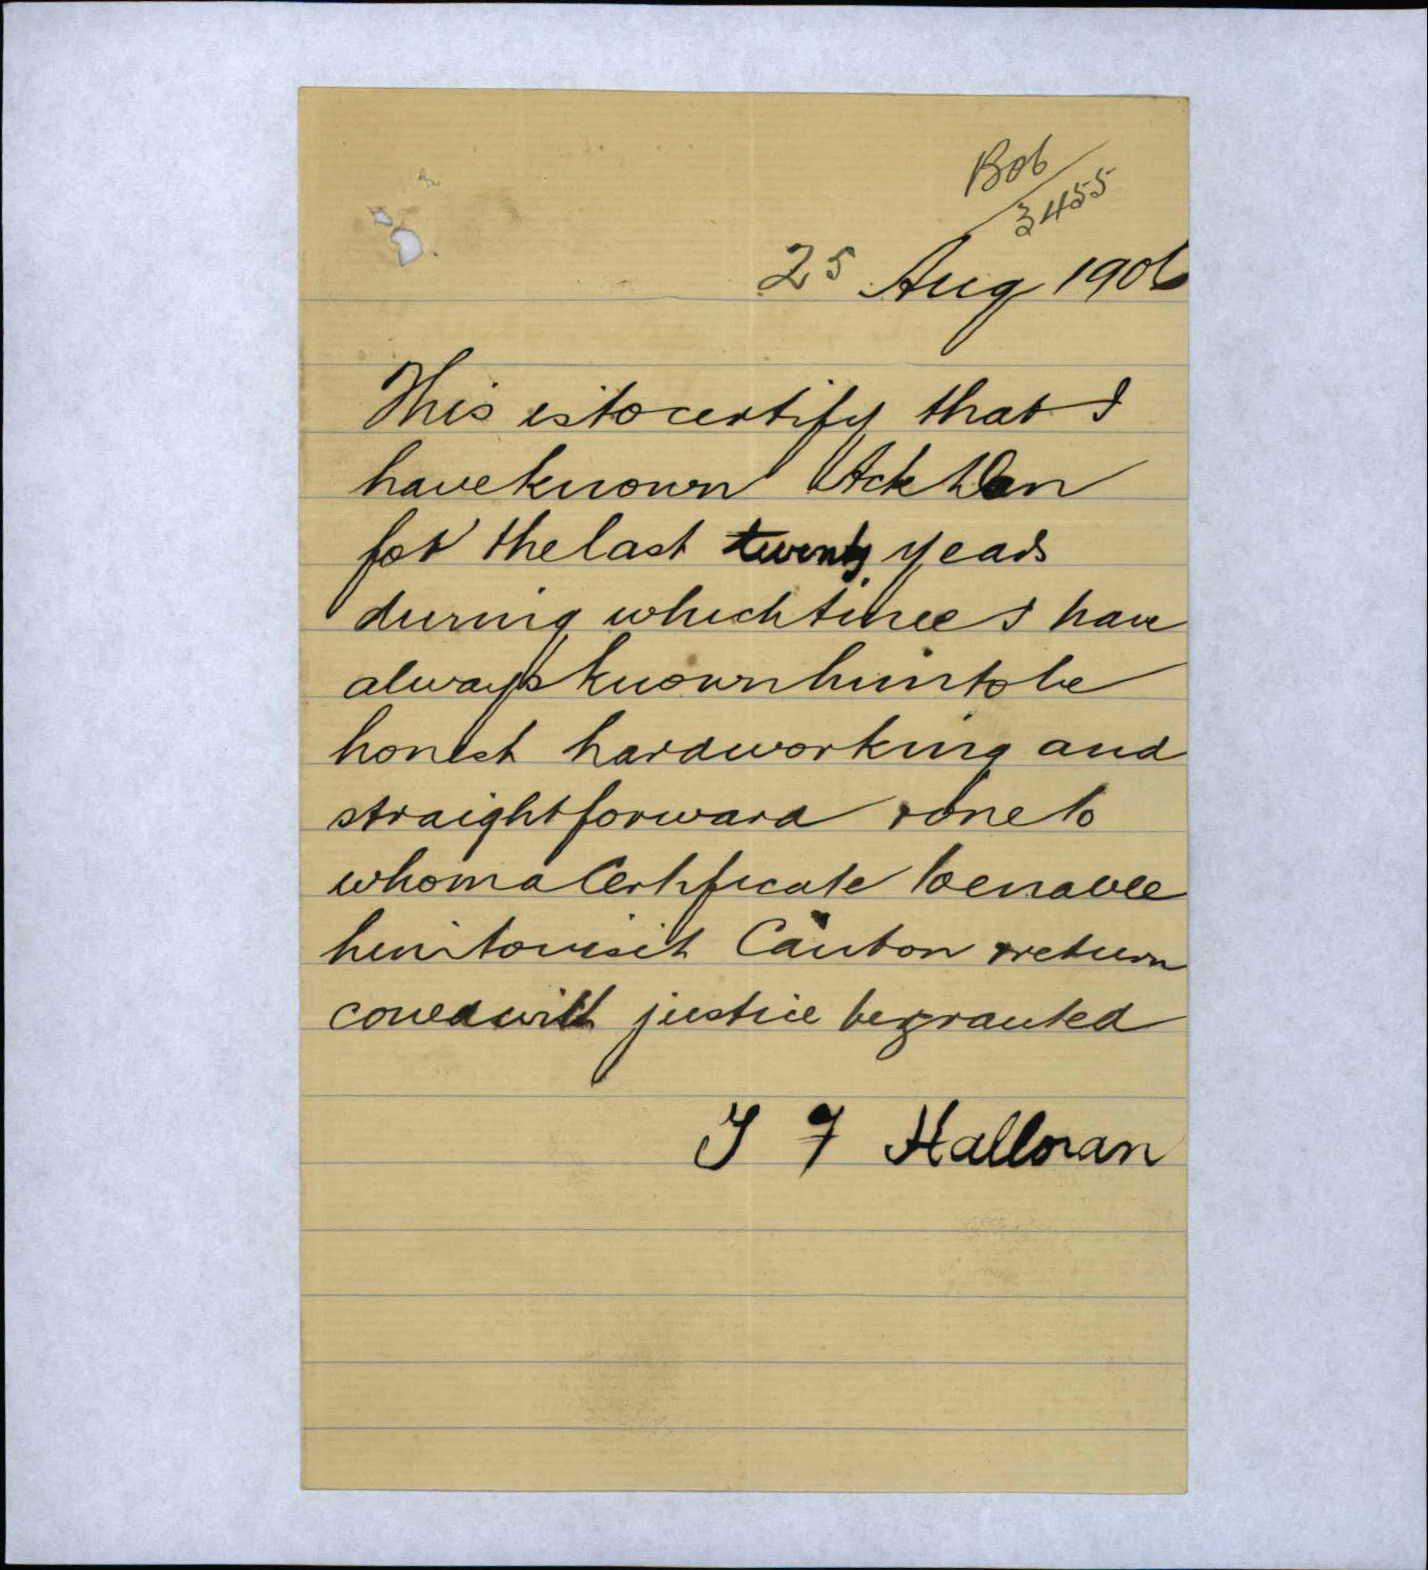 B06/3455
25 Aug 1906
This is to certify that I
have known Ack
for the last twenty years
during which time I have
always known him to be
honest hardworking and
straightforward & one to
whom a Certificate to enable
him to visit Canton & return
could with justice be granted
J F Halloran